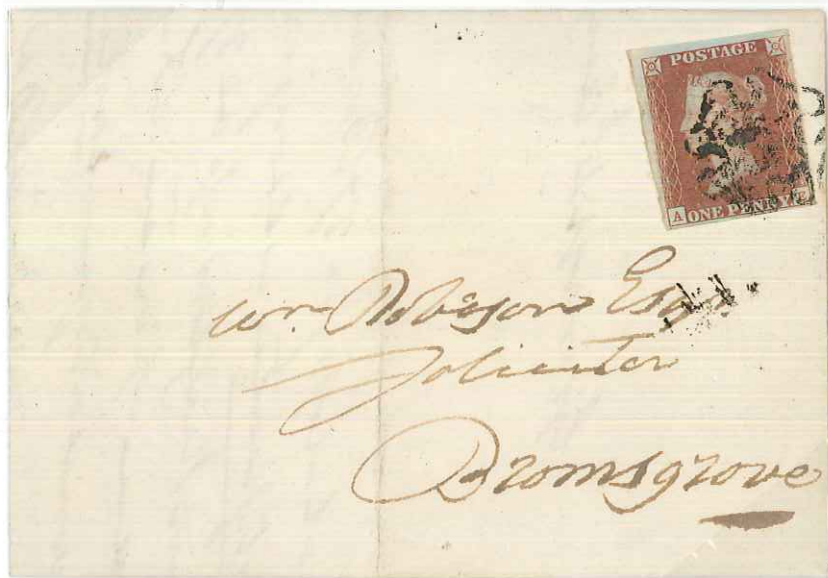 POSTAGE
A ONE PENNY E
Wm Robeson Esqr
Solicitor
Bromsgrove